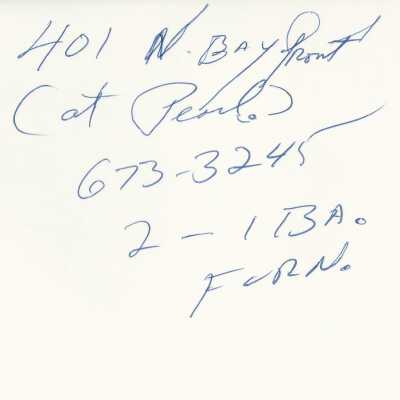 401 N. BAYfront
(at Pearl.)
673-3245
2 - 1 BA.
FURN.